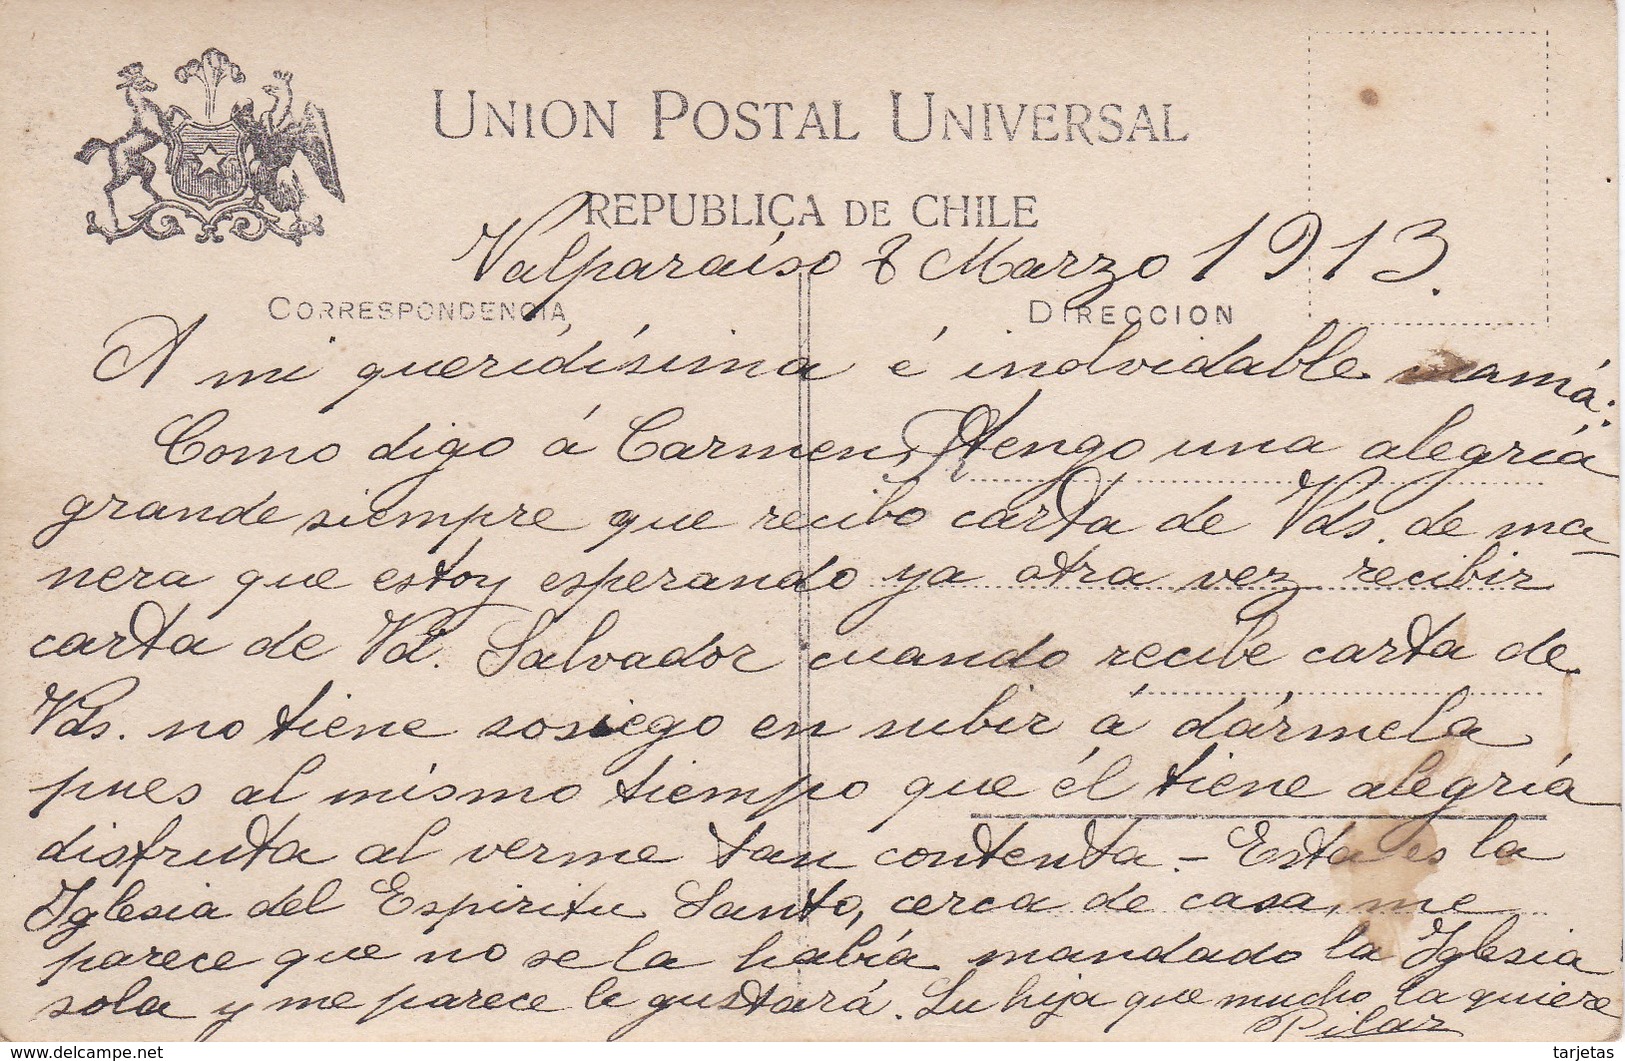 UNION POSTAL UNIVERSAL
REPUBLICA DE CHILE
Valparaíso 8 Marzo 1913.
CORRESPONDENCIA
DIRECCION
A mi queridísima é inolvidable mamá:
Como digo á Carmen, tengo una alegría
grande siempre que recibo carta de Vds. de ma-
nera que estoy esperando ya otra vez recibir
carta de Vd. Salvador cuando recibe carta de
Vds. no tiene sosiego en subir á dármela
pues al mismo tiempo que él tiene alegría
disfruta al verme tan contenta. - Esta es la
Iglesia del Espiritu Santo, cerca de casa, me
parece que no se la había mandado la Iglesia
sola y me parece le gustará. Su hija que mucho la quiere
Pilar
www.delcampe.net
tarjetas